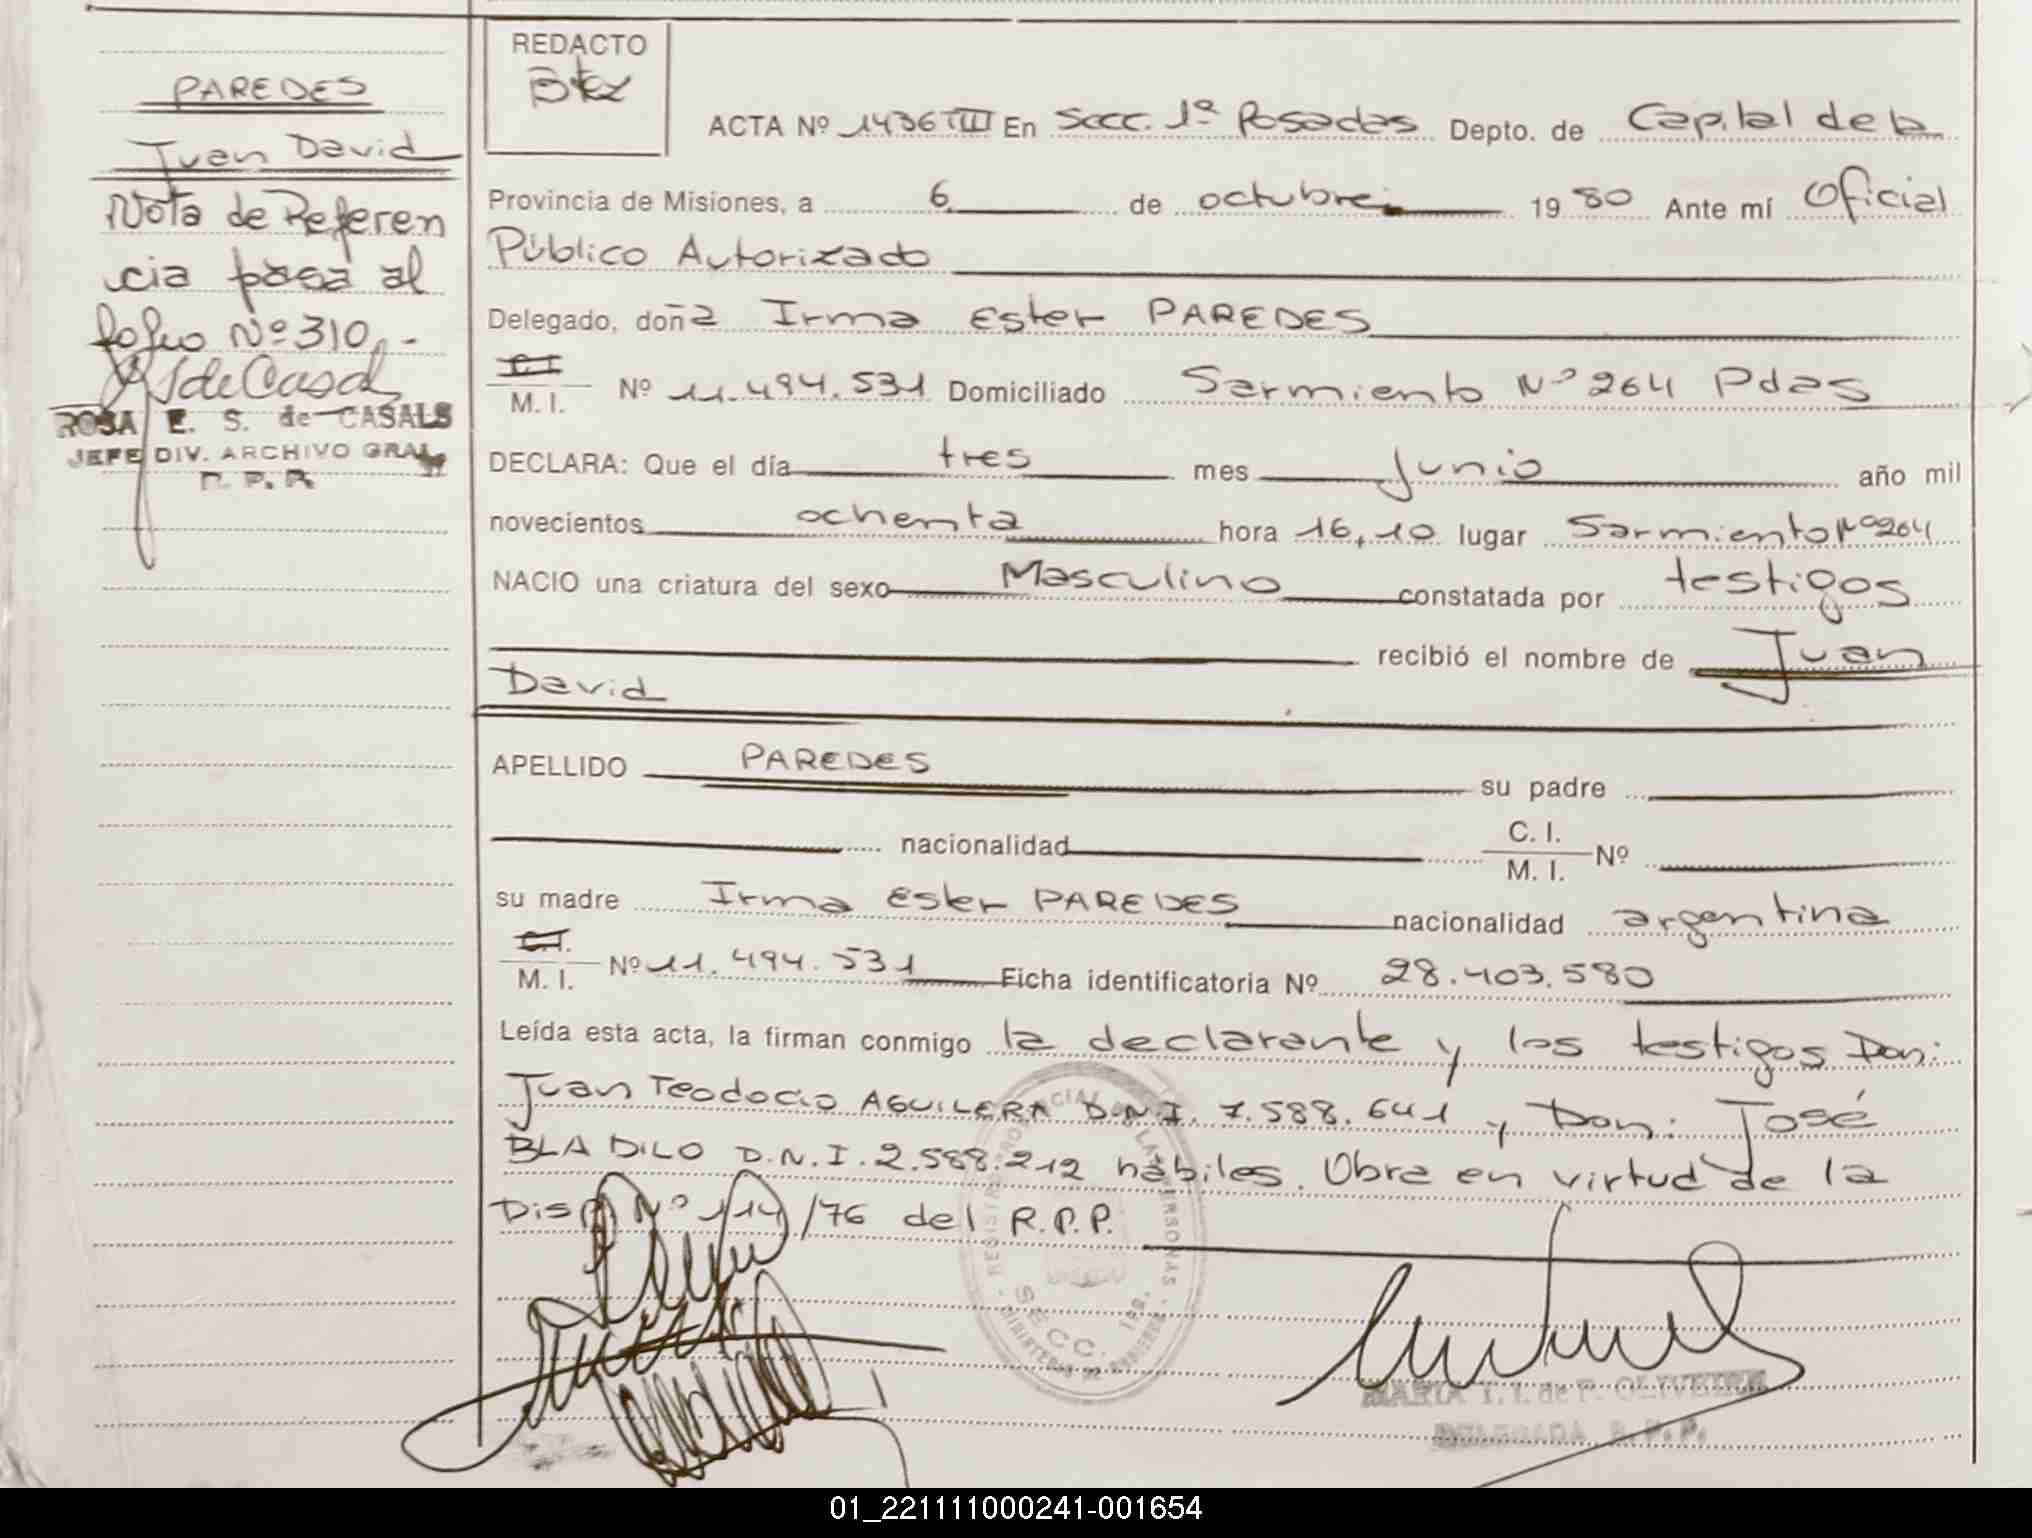 PAREDES
Juan David
Nota de Referen
cia pasa al
folio Nº 310.-
ROSA E. S. de CASALS
JEFE DIV. ARCHIVO GRAL.
REDACTO
ACTA Nº 1436 III En Secc. 1ª Posadas Depto. de Capital de la
Provincia de Misiones, a 6 de octubre 19 80 Ante mí Oficial
Público Autorizado
Delegado, doña Irma Ester PAREDES
C.I.
M. I. Nº 11.494.531 Domiciliado Sarmiento Nº 264 Pdas
DECLARA: Que el día tres mes Junio año mil
novecientos ochenta hora 16,10 lugar Sarmiento Nº 264
NACIO una criatura del sexo Masculino constatada por testigos
recibió el nombre de Juan
David
APELLIDO PAREDES su padre
nacionalidad C. I.
M. I. Nº
su madre Irma Ester PAREDES nacionalidad argentina
C.I.
M. I. Nº 11.494.531 Ficha identificatoria Nº 28.403.580
Leída esta acta, la firman conmigo la declarante y los testigos Don:
Juan Teodocio AGUILERA D.N.I. 7.588.641 y Don: José
BLADILO D.N.I. 2.588.212 hábiles. Obra en virtud de la
Disp. Nº 114/76 del R.P.P.
SECC. 1RA.
MARIA T. I. de P. OLIVEIRA
DELEGADA R. P. P.
01_221111000241-001654